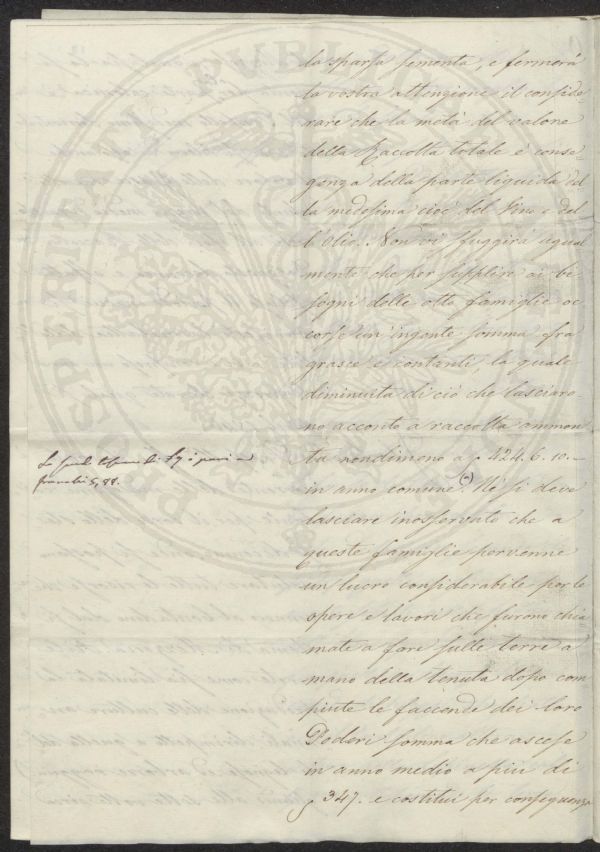 PROSPERITATI PVBLICAE
la sparsa sementa, e fermerà
la vostra attenzione il conside=
rare che la metà del valore
della Raccolta totale è conse=
guenza della parte liquida del
la medesima cioè del Vino e del
l'Olio. Non vi sfuggirà egual
mente che per supplire ai bi=
sogni delle otto famiglie oc
corse un'ingente somma fra
grasce e contanti, la quale
diminuita di ciò che lasciaro=
no acconto a raccolta ammon
ta nondimeno a 424. 6. 10. =
in anno comune (*) Nè si deve
lasciare inosservato che a
queste famiglie pervenne
un lucro considerabile per le
opere e lavori che furono chia
mate a fare sulle terre a
mano della tenuta dopo com
piute le faccende dei loro
Poderi somma che ascese
in anno medio a più di
347. e costituì per conseguenza
di £ 7 è pari a
franchi 5, 88.